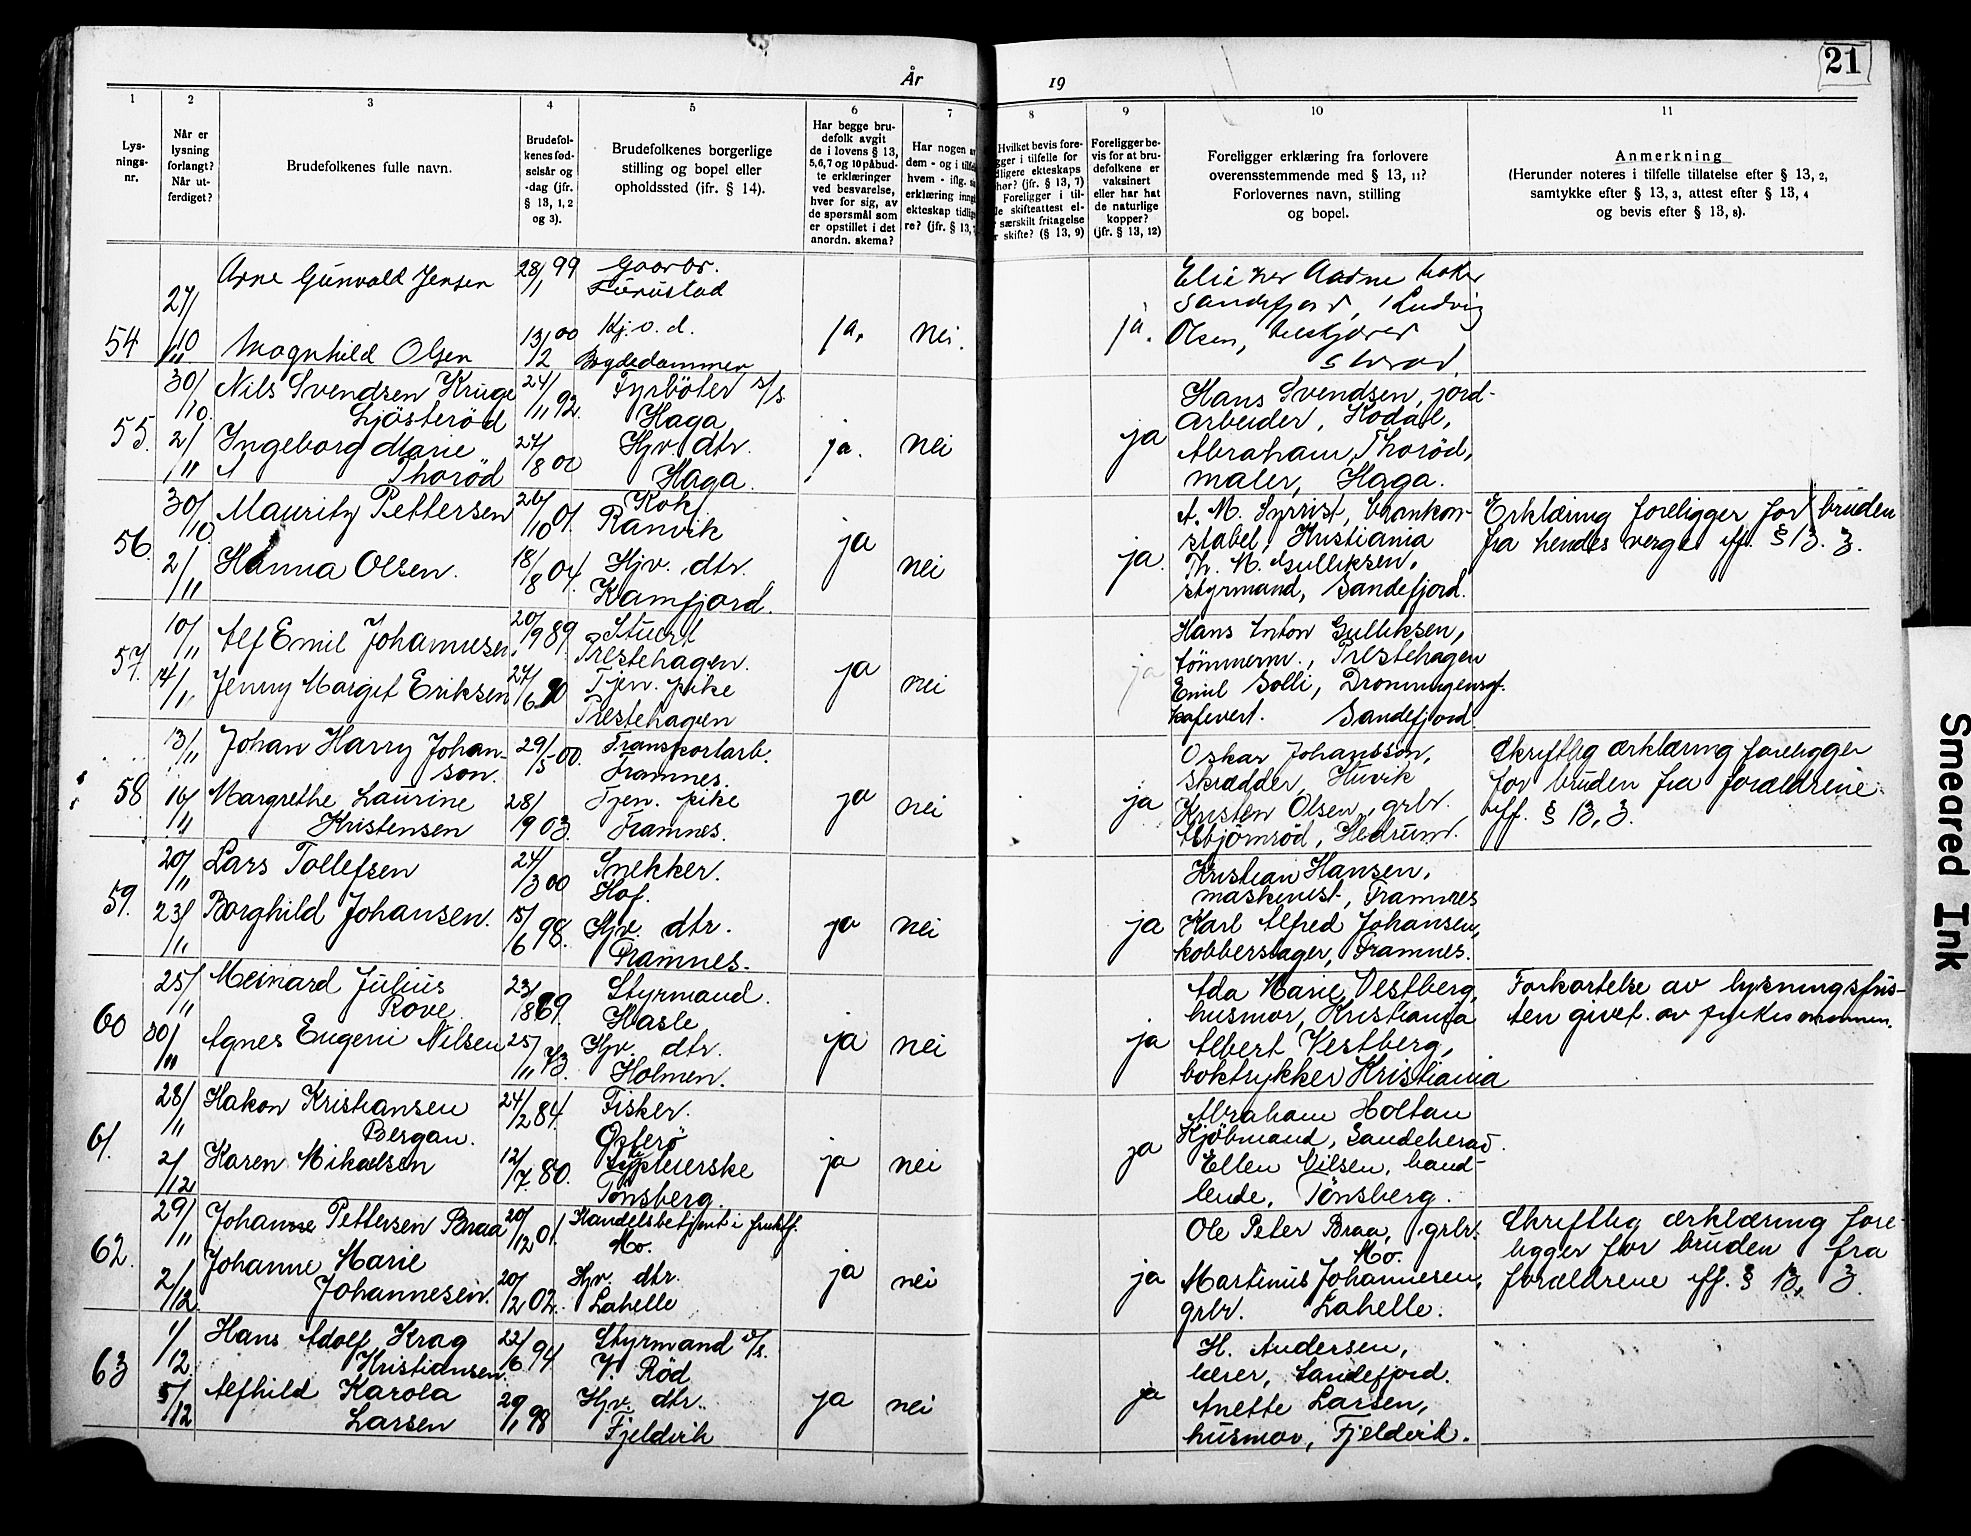 År 19
21
1
2
3
4
5
6
7
8
9
10
11
Lys-
nings-
nr.
Når er
lysning
forlangt?
Når ut-
ferdiget?
Brudefolkenes fulle navn.
Brudefol-
kenes fød-
selsår og
-dag (jfr.
§ 13, 1, 2
og 3).
Brudefolkenes borgerlige
stilling og bopel eller
opholdssted (ifr. § 14).
Har begge bru-
defolk avgit
de i lovens § 13,
5, 6, 7 og 10 påbud-
te erklæringer
ved besvarelse,
hver for sig, av
de spørsmål som
er opstillet i det
anordn. skema?
Har nogen a
dem - og i tilfe
hvem - iflg. s
erklæring inng
ekteskap tidlig
re? (jfr. § 13,
Hvilket bevis fore-
gger i tilfelle for
dligere ekteskaps
hør? (jfr. § 13, 7)
Foreligger i til-
le skifteattest el-
særskilt fritagelse
r skifte? (§ 13, 9)
Foreligger be-
vis for at bru-
defolkene er
vaksinert
eller har hat
de naturlige
kopper?
(jfr. § 13, 12)
Foreligger erklæring fra forlovere
overensstemmende med § 13, 11?
Forlovernes navn, stilling
og bopel.
Anmerkning
(Herunder noteres i tilfelle tillatelse efter § 13, 2,
samtykke efter § 13, 3, attest efter § 13, 4
og bevis efter § 13, 8).
54
27/10
Arne Gunvald Jensen 28/1 99 Gaardbr.
Furustad
Magnhild Olsen 13/2 00 Hj. v. d.
Bygdedammen
ja. nei. ja.
Sandefjord, Ludvig
Olsen,
55.
30/10. 2/11
Nils Svendsen Kruge 24/11 92. Fyrböter s/s
Ljösteröd Haga
Ingeborg Marie 27/8 00 Hjv. dtr.
Thoröd Haga.
ja. nei ja
Hans Svendsen, jord-
arbeider, Kodal,
Abraham Thoröd,
maler, Haga.
56.
30/10. 2/11
Mauritz Pettersen 26/10 01. Kok
Ranvik
Hanna Olsen. 18/8 04. Hjv. dtr.
Kamfjord.
ja nei ja.
stabel, Kristiania
Th. M. Gulliksen,
styrmand, Sandefjord.
Erklæring foreligger for bruden
fra hendes verge iff. § 13. 3.
57.
10/11 14/11
Alf Emil Johannesen 20/9 89. Stuert
Prestehagen.
Jenny Margit Eriksen 27/6 90 Tjen. pike
Prestehagen
ja nei ja
Hans Anton Gulliksen,
tömmerm., Prestehagen
Emil Solli, Dronningensgt.
kafevert. Sandefjord
58.
13/11 16/11
Johan Harry Johan- 29/5 00. Transportarb.
son. Framnes.
Margrethe Laurine 28/9 03. Tjen. pike
Kristensen Framnes.
ja nei ja
Oskar Johansson,
skrædder, Huvik
Kristen Olsen, grbr.
Asbjörnröd, Hedrum.
Skriftlig ærklæring foreligger
for bruden fra forældrene
iff. § 13, 3.
59.
20/11 23/11
Lars Tollefsen 24/3 00 Snekker.
Hof.
Borghild Johansen. 15/6 98. Hjv. dtr.
Framnes.
ja nei ja
Kristian Hansen,
maskinist, Framnes
Karl Alfred Johansen,
kobberslager, Framnes.
60
25/11 30/11
Meinard Julius 23/8 89. Styrmand.
Rove. Hasle
Agnes Eugeni Nilsen 25/11 93. Hjv. dtr.
Holmen.
ja nei ja
Ada Marie Vestberg,
husmor, Kristiania
Albert Vestberg,
boktrykker Kristiania
Forkortelse av lysningsfris-
ten givet av
61.
28/11 2/12
Hakon Kristiansen 24/2 84. Fisker.
Bergan. Österö
Karen Mikalsen 12/7 80.
Tönsberg.
ja nei ja
Abraham Holtan
Kjöbmand, Sandeherad.
Ellen Nilsen, hand-
lende, Tönsberg.
62.
29/11 2/12
Johannes Pettersen Braa 20/12 01. Handelsbetjent i fruktf.
Mo.
Johanne Marie 20/12 02. Hjv. dtr.
Johannesen. Lahelle
ja nei ja
Ole Peter Braa, grbr.
Mo.
Martinus Johannesen,
grbr. Lahelle.
Skriftlig ærklæring fore-
ligger for bruden fra
forældrene iff. § 13, 3.
63
1/12. 5/12
Hans Adolf Krag 22/6 94. Styrmand d/s.
Kristiansen. V. Röd
Alfhild Karola 29/1 98 Hjv. dtr.
Larsen Fjeldvik
ja nei ja
H. Andersen,
lærer, Sandefjord.
Anette Larsen,
husmor, Fjeldvik.
Smeared Ink